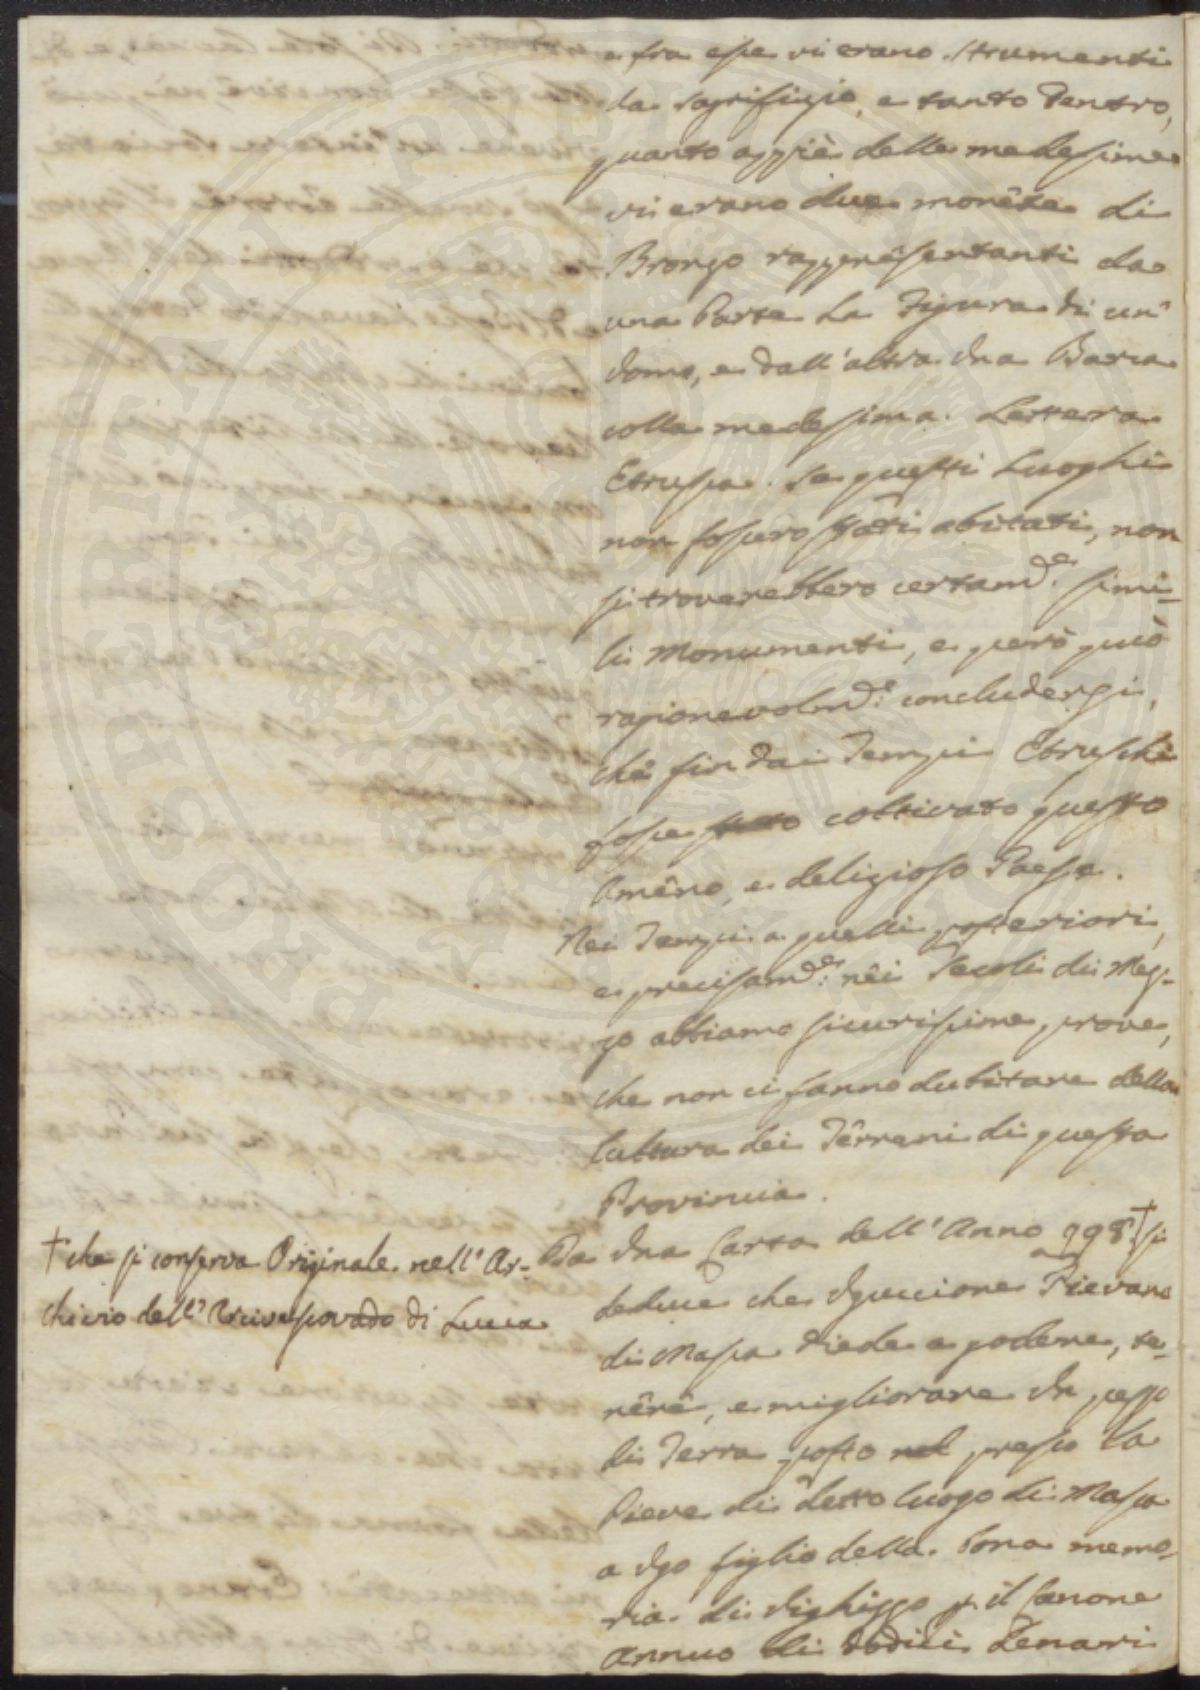 e fra esse vi erano strumenti
da sagrifizio, e tanto dentro,
quanto appiè delle medesime
vi erano due monête di
Bronzo rappresêntanti da
una Parte la Figura di un'
Uomo, e dall'altra Una Barca
colla medesima Lettera
Etrusca. Se questi Luoghi
non fossero stati abitati, non
si troverebbero certam.e simi-
li Monumenti, e però può
ragionevolm.e concludersi,
chê fin dai Tempi Etruschi
fosse stato coltivato questo
Amêno, e delizioso Paese.
Nei Tempi a quelli posteriori,
e precisam.e nêi Secoli di Mez-
zo abbiamo sicurissime prove,
che non ci fanno dubitare della
Cultura dei Têrreni di questa
Provincia.
Da Una Carta dell'Anno 998 † si
deduce che Uguccione Pievano
di Massa diede a godere, te-
nêrê, e migliorare Un pezzo
di Terra posto nel presso la
Pieve di detto luogo di Massa
a Ugo figlio della bona memo-
ria di Sighizzo p. il Canone
Annuo di dodici Denari
† che si conserva Originale nell'Ar-
chivio dell'Arcivescovado di Lucca